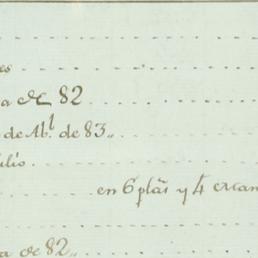 es
a de 82
de Ab.l de 83,,
ulio
en 6 plãs y 4 escan
a de 82,,